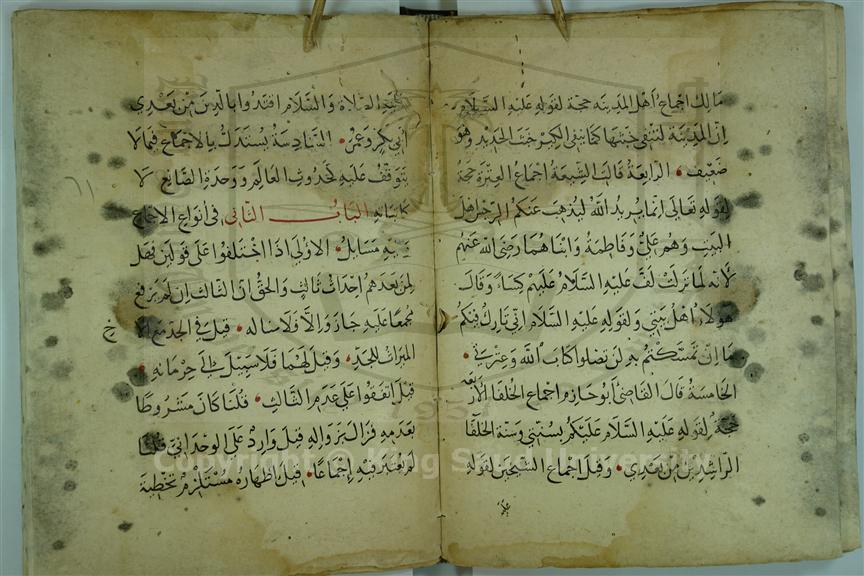 مالك اجماع اهل المدينة حجة لقوله عليه السلام
ان المدينة لتنفى خبثها كما ينفى الكير خبث الحديد وهو
ضعيف الرابعة قالت الشيعة اجماع العترة حجة
لقوله تعالى انما يريد الله ليذهب عنكم الرجس اهل
البيت وهم على وفاطمة وابناهما رضى الله عنهم
لانه لما نزلت لف عليه السلام عليهم كساء وقال
هولاء اهل بيتى ولقوله عليه السلام انى تارك فيكم
ما ان تمسكتم به لن تضلوا كتاب الله وعترتى
الخامسة قال القاضى ابو حازم اجماع الخلفا الاربعة
حجة لقوله عليه السلام عليكم بسنتى وسنة الخلفا
الراشدين من بعدى وقيل اجماع الشيخين لقوله
عليه الصلاة والسلام اقتدوا بالذين من بعدي
ابى بكر وعمر السادسة يستدل بالاجماع فيما لا
يتوقف عليه كحدوث العالم ووحدة الصانع لا
كاثباته الباب الثانى فى انواع الاجماع
وفيه مسايل الاولى اذا اختلفوا على قولين فهل
لمن بعدهم احداث ثالث والحق ان الثالث ان لم يرفع
مجمعا عليه جاز والا فلا مثاله قيل فى الجد مع الاخ
الميراث للجد وقيل لهما فلا سبيل الى حرمانه
قيل اتفقوا على عدم الثالث قلنا كان مشروطا
بعدمه فزال بزواله قيل وارد على الوحدانى قلنا
لم يعتبر فيه اجماعا قيل اظهاره مستلزم تخطية
١١
Copyright © King Saud University
1957